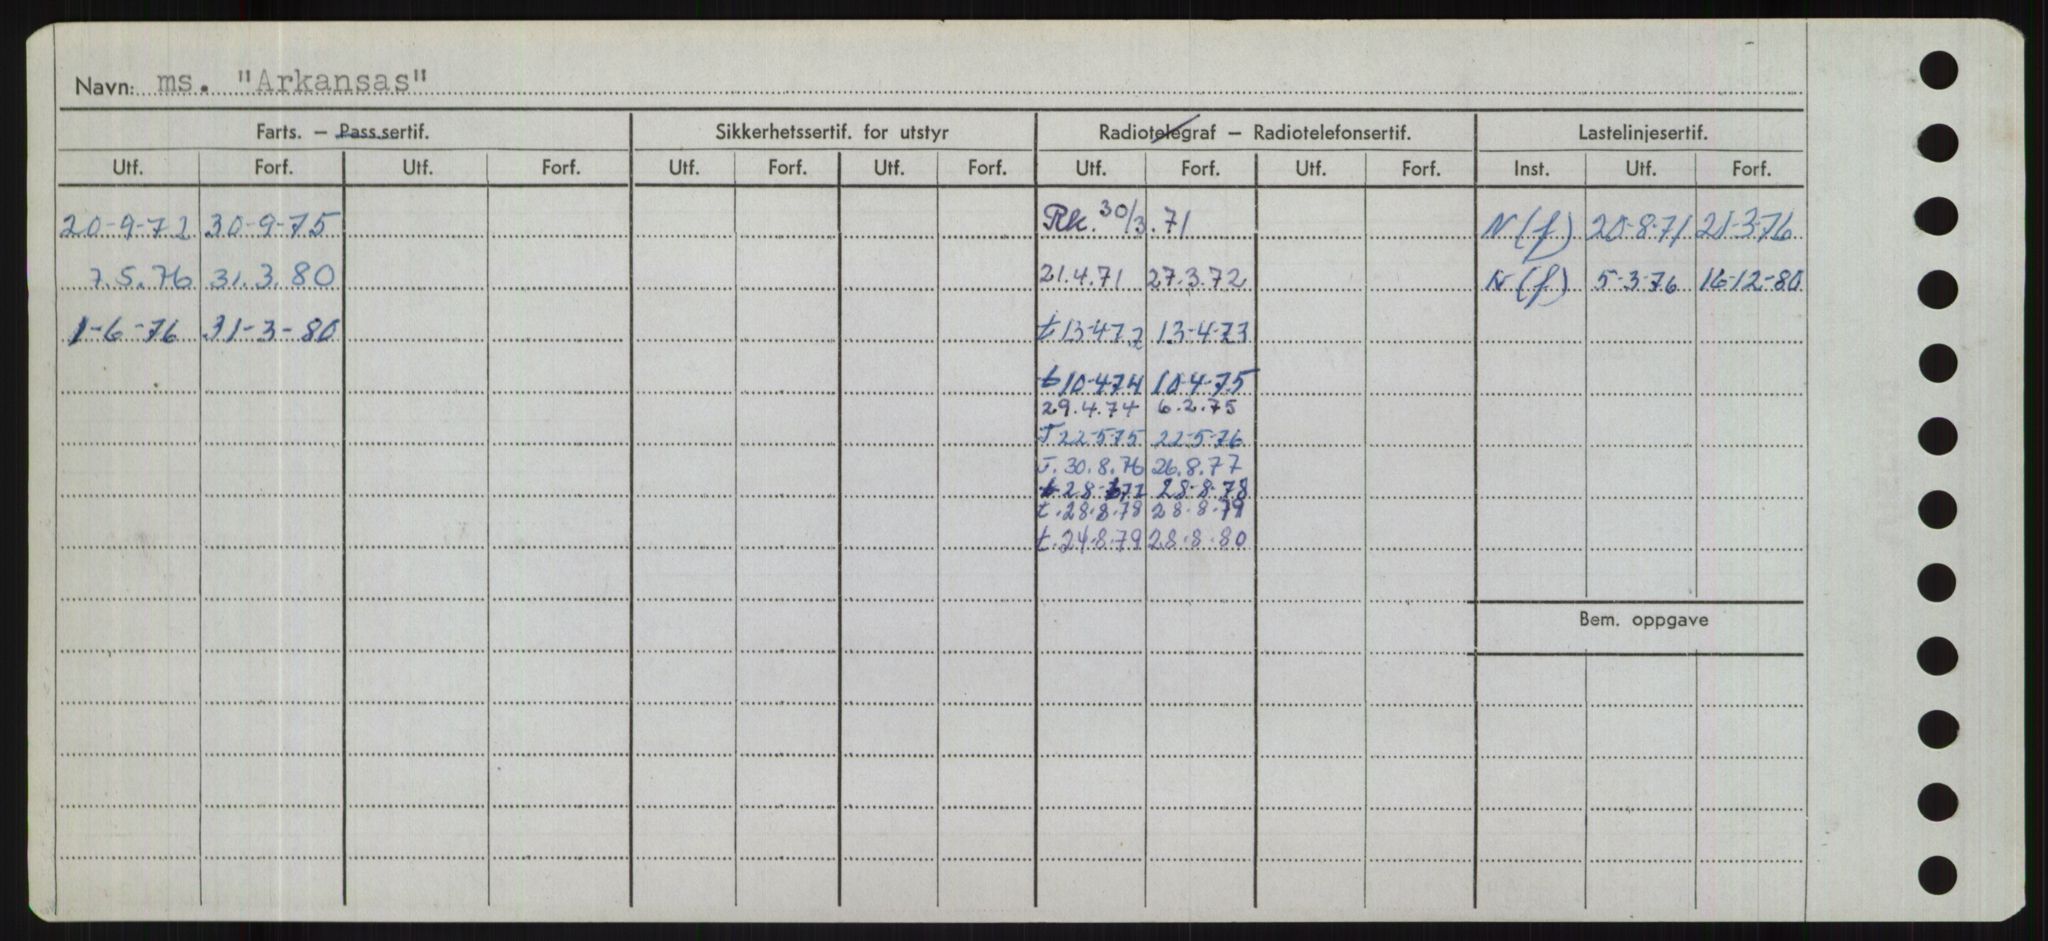 Navn: ms. "Arkansas"
Farts. — Pass.sertif. Sikkerhetssertif. for utstyr Radiotelegraf — Radiotelefonsertif. Lastelinjesertif.
Utf. Forf. Utf. Forf. Utf. Forf. Utf. Forf. Utf. Forf. Utf. Forf. Inst. Utf. Forf.
20-9-72 30-9-75 Rk. 30/3.71 N(f) 20-8-71 21-3-76
7.5.76 31.3.80 21.4.71 27.3.72 N(f) 5-3-76 16-12-80
1-6-76 31-3-80 t 13-4-72 13-4-73
t 10-4-74 10-4-75
29.4.74 6.2.75
T 22-5-75 22-5-76
T. 30.8.76 26.8.77
t 28- -77 28-8-78
t. 28.8.78 28-8-79
t. 24-8-79 28-8-80
Bem. oppgave